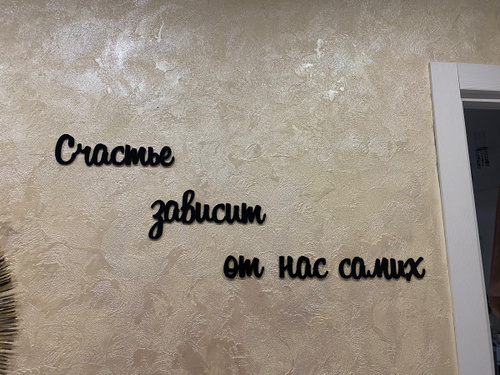 Счастье
зависит
от нас самих